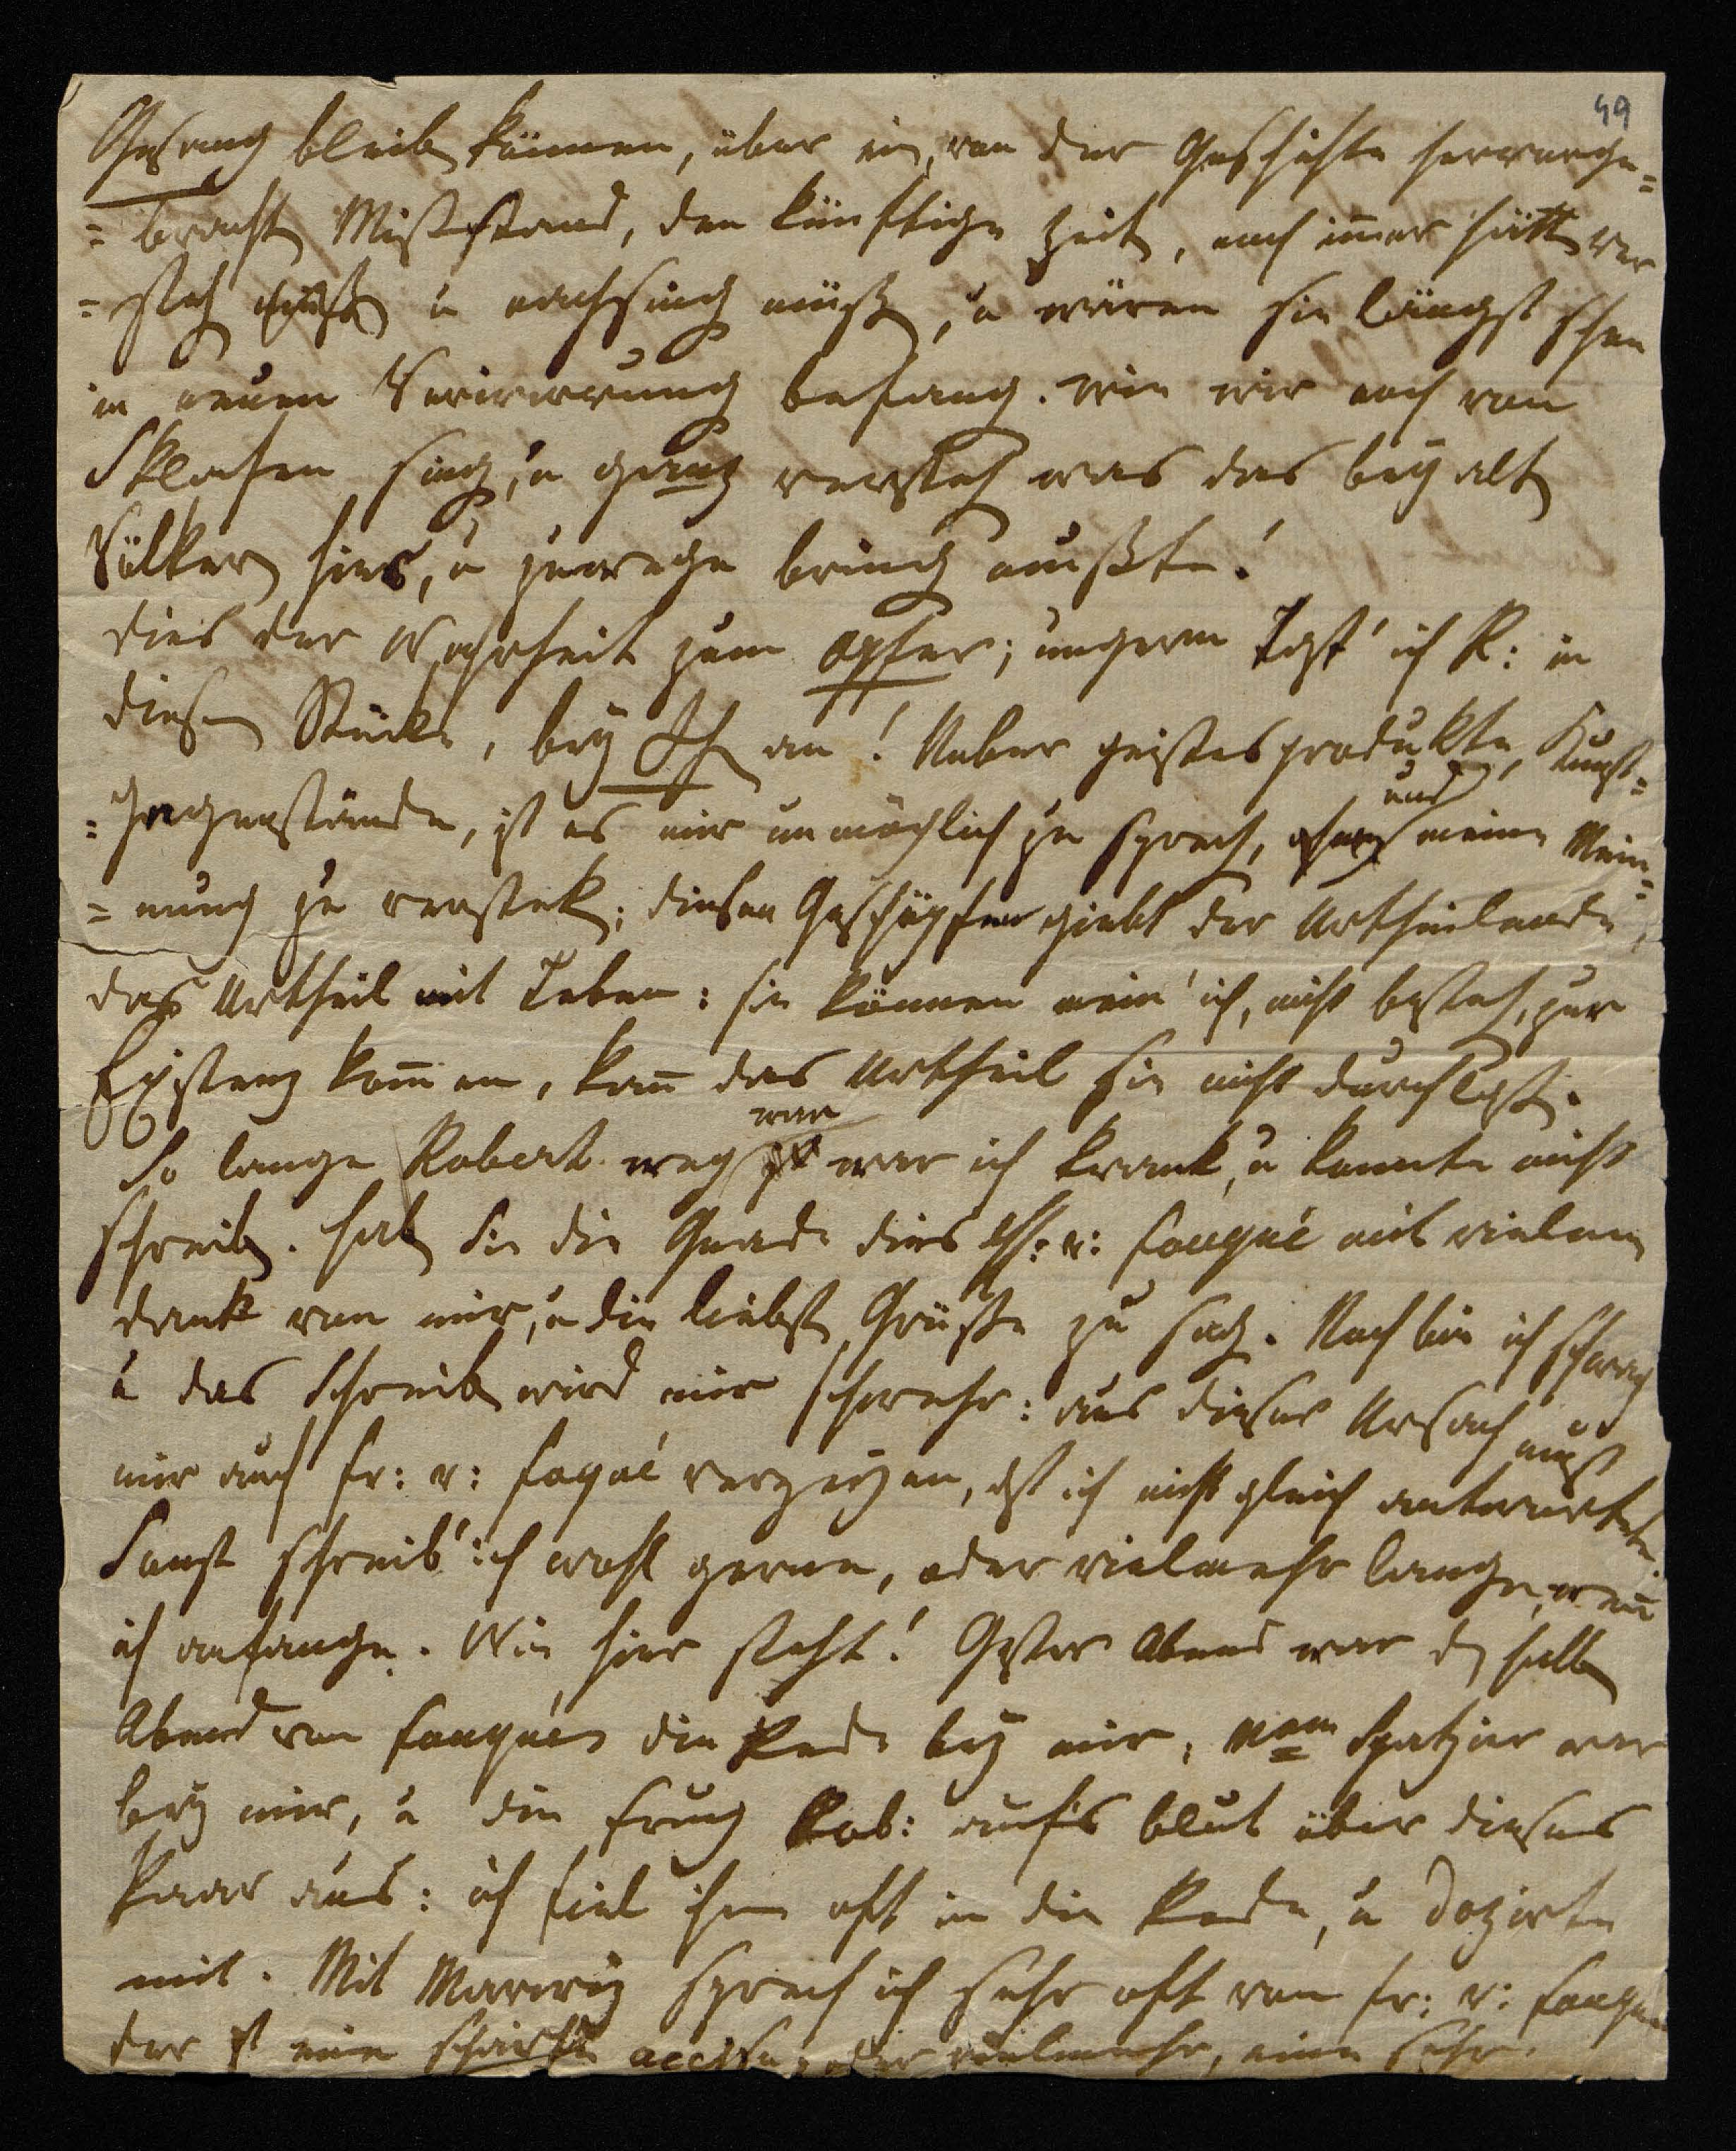 49
Gesang bleiben können, über ein, von der Geschichte hervorge=
=brachten Mißstand, den künftige Zeiten, noch immer hätten ver
=stehen u nachsingen müßen, u wären sie längst schon
in neuen Verirrung befangen. Wie wir noch von
Sklafen singen, u ganz verstehen was das bey alten
Völkern hies, u zuwege bringen mußte!
dies der Wahrheit zum Opfer; ungern tast' ich R: in
diesem Stücke, bey Ihnen an! Ueber geistesprodukte, Kunst=
=gegenstände, ist es mir unmöglich zu sprechen, und meine Mein=
=nung zu verstecken; diesen Geschöpfen giebt der Urtheilende,
das Urtheil mit Leben: sie können mein' ich, nicht bestehen, zur
Existenz kommen, kann das Urtheil sie nicht durchlaßen.
So lange Robert weg war war ich krank, u konnte nicht
schreiben. haben Sie die Gnade dies H: v: Fouqué mit vielem
dank von mir, u die liebsten Grüße zu sagen. Noch bin ich schwach
u das Schreiben wird mir schwehr: aus dieser Ursach muß
mir auch Fr: v: Foqué verzeihen, daß ich nicht gleich antwortete.
Sonst schreib' ich wohl gerne, oder vielmehr lange, wenn
ich anfange. Wie hier steht! Gestern Abend war den halben
Abend von Fouqués die Rede bey mir; Mam Spatzier war
bey mir, u die frug Rob: auf's blut über dieses
Paar aus: ich fiel ihm oft in die Rede, u dozirte
mit. Mit Marwitz sprach ich sehr oft von Fr: v: Fouqué
der ist eine scharfe oder vielmehr, eine sehr